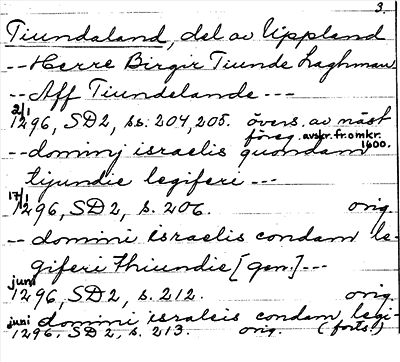 3.
Tiundaland, del av Uppland
-- Herre Birgir Tiunde Laghman
-- Aff Tiundelande ---
2/1
1296, SD2, ss. 204, 205. övers. av näst
föreg. avskr. fr. omkr. 1600.
-- dominj israelis quondam
tijundie legiferi ---
17/1
1296, SD2, s. 206. orig.
-- domini israelis condam le-
giferi thiundie [gen.] ---
juni
1296, SD2, s. 212. orig.
juni domini israleis condam legi-
1296, SD2, s. 213. orig. (forts.)